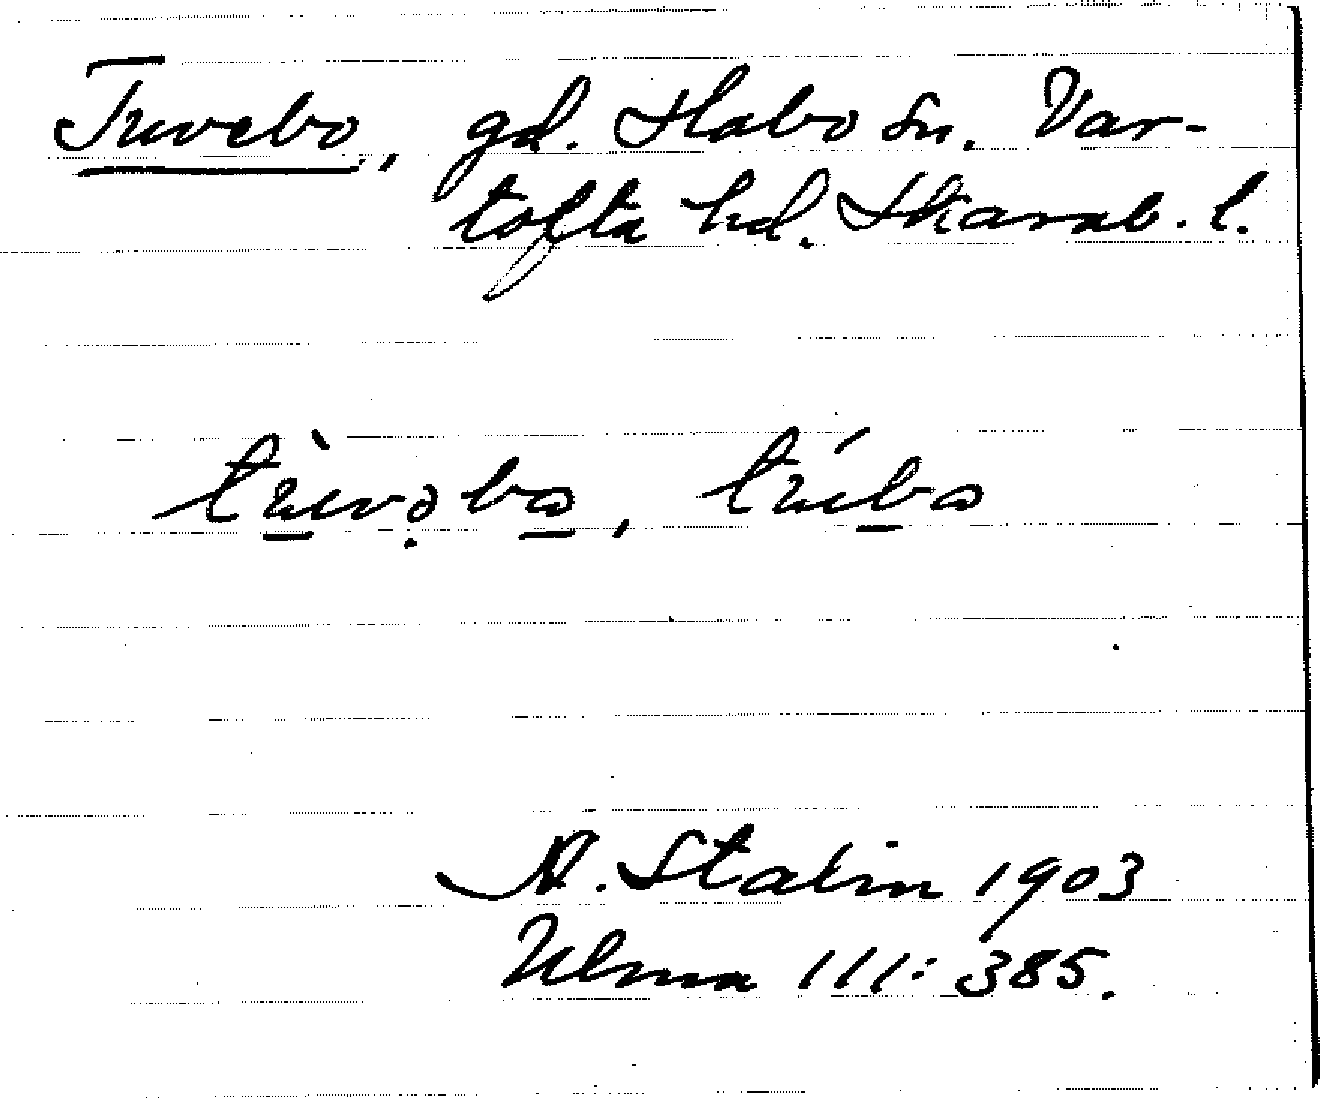 Tuvebo, gd. Habo sn. Var-
tofta hd. Skarab. l.
tùvǝ̣bo, túbo
A. Stalin 1903
Ulma 111: 385.